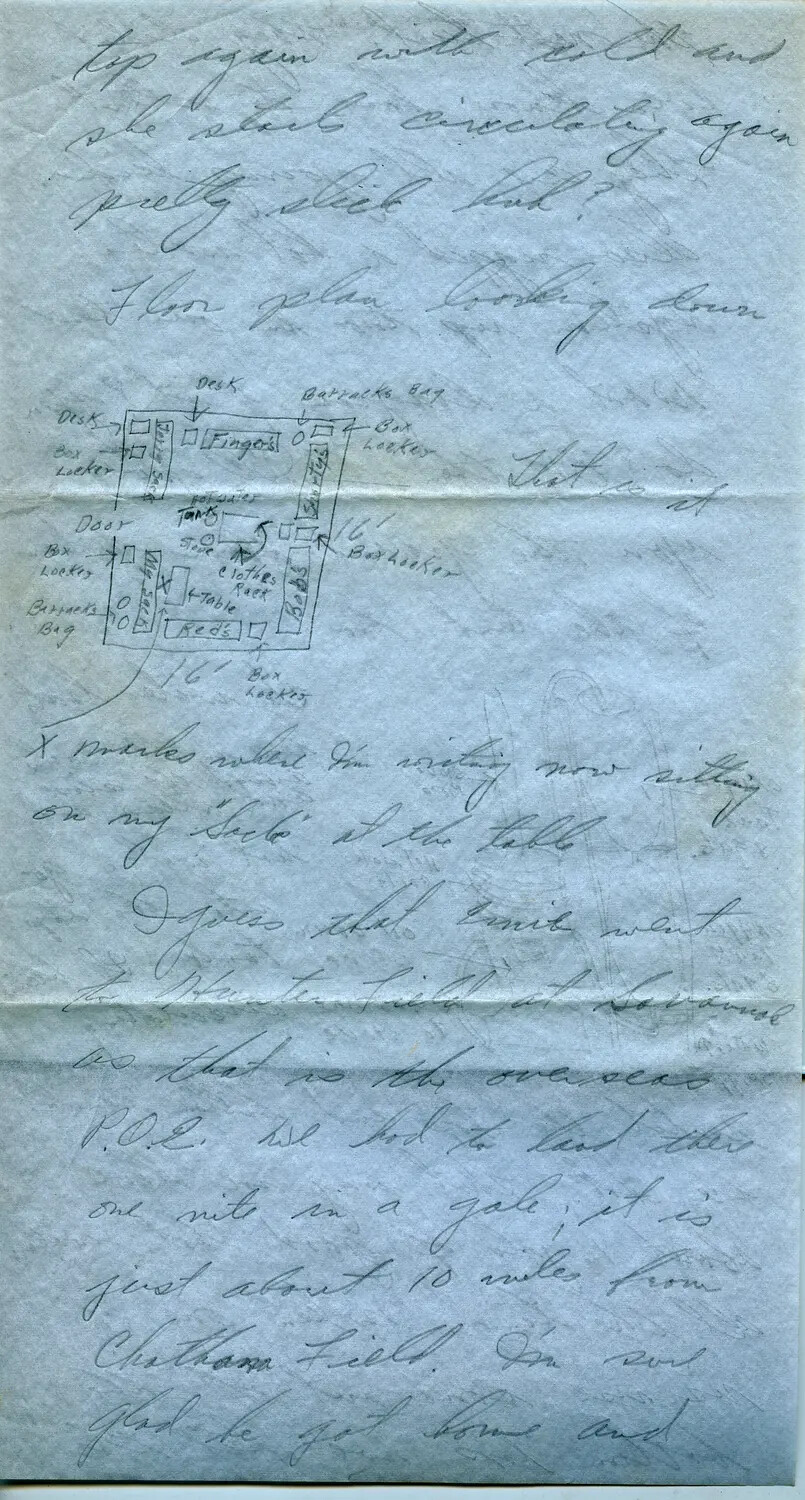 top again with cold and
she starts circulating again
pretty slick huh?
Floor plan looking down
Desk
Barracks Bag
Desk
Box Locker
Fingers
Box Locker
Sack
Shorty's
That is it
Hot water
Tank
Stove
Door
16'
Box Locker
Box Locker
Clothes Rack
My Sack
X
Table
Bob's
Barracks Bag
Red's
16'
Box Locker
X marks where I'm writing now sitting
on my "Sack" at the table
I guess that Emil went
to Hunter Field at Savannah
as that is the overseas
P.O.E. We had to land there
one nite in a gale; it is
just about 10 miles from
Chatham Field. I'm sure
glad he got home and